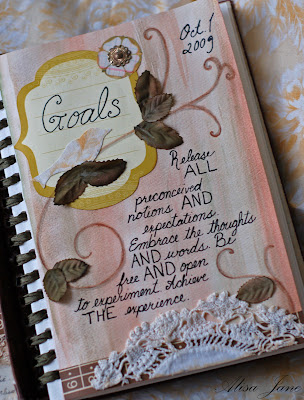 Oct. 1
2009
Goals
Release
ALL
preconceived
notions AND
expectations.
Embrace the thoughts
AND words. Be
free AND open
to experiment. Achieve
THE experience.